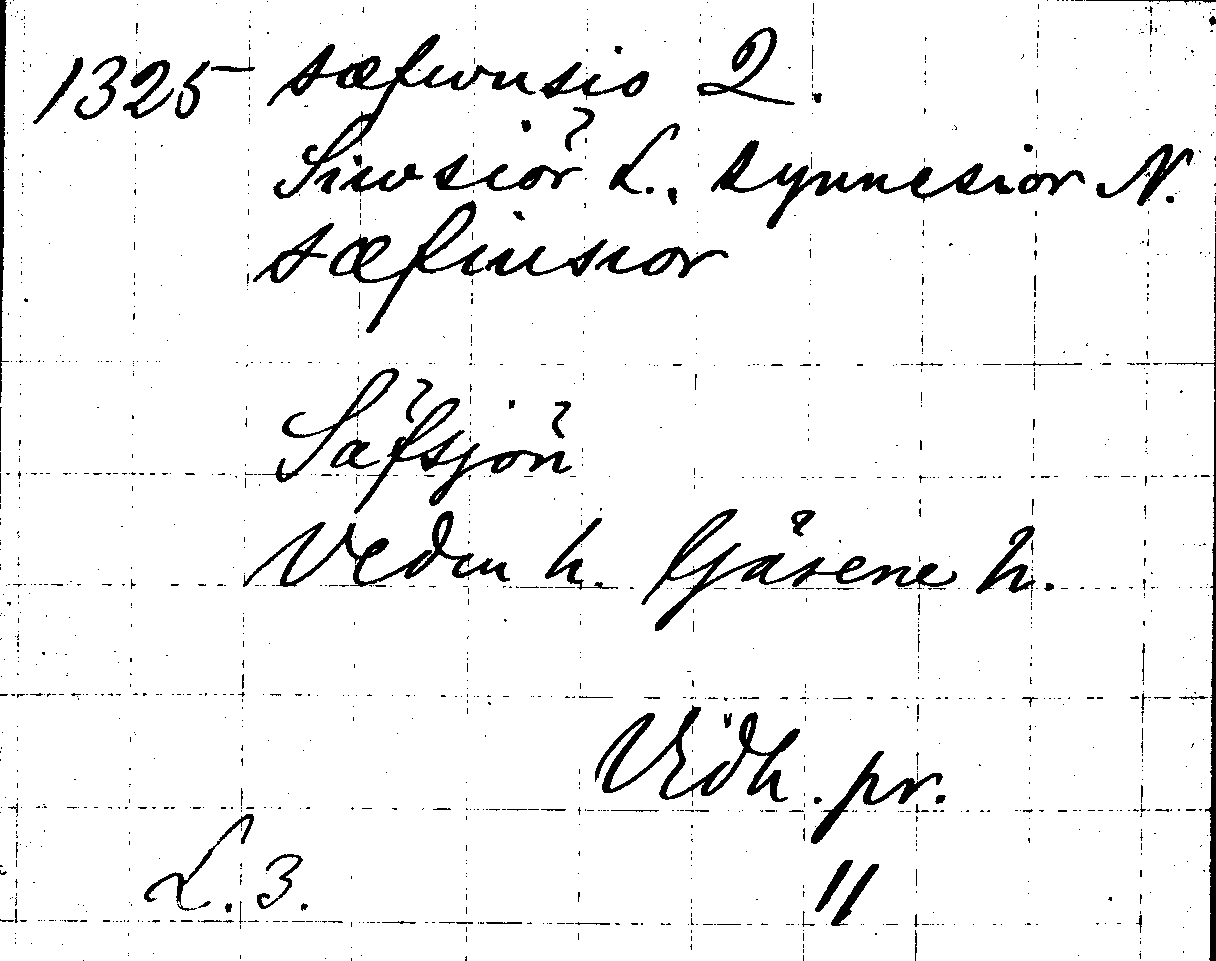 1325 sæfwnsio 2.
Siwsiör L., synnesior N.
sæfinsior
Säfsjön
Veden h. Gäsene h.
Vidh. pr.
L. 3. 11